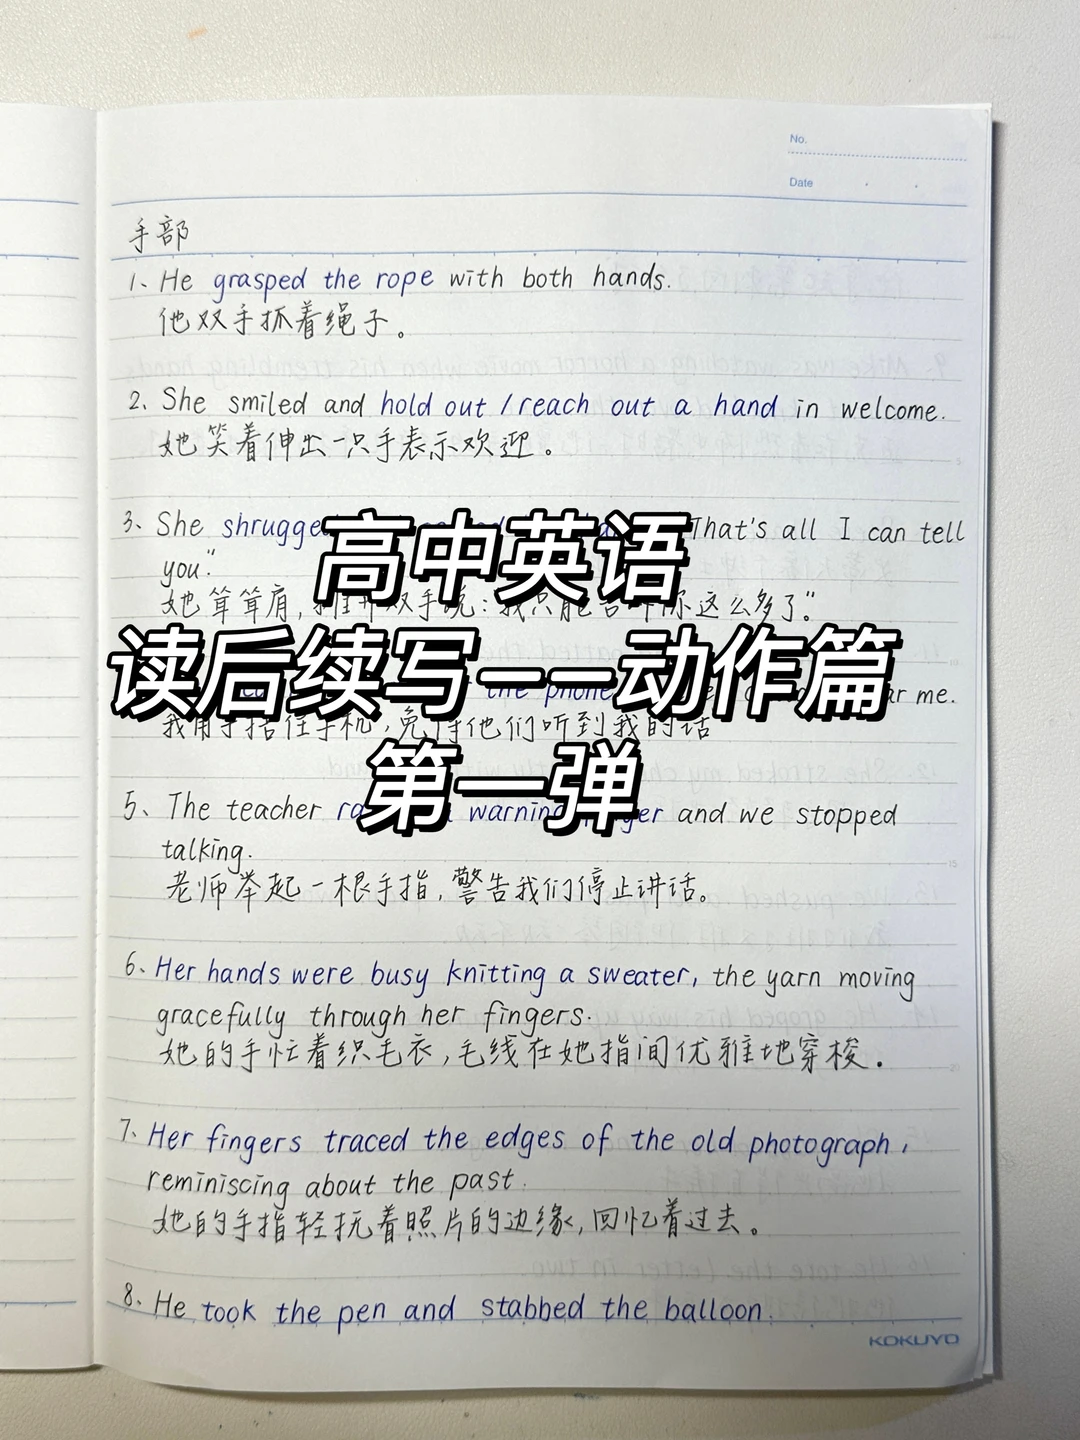 No.
Date
手部
1、He grasped the rope with both hands.
他双手抓着绳子。
2、She smiled and hold out / reach out a hand in welcome.
她笑着伸出一只手表示欢迎。
3、She That's all I can tell
you."
她耸耸肩,
这么多了"
高中英语
读后续写——动作篇
第一弹
the phone me.
我用手捂住手机,免得他们听到我的话
5、The teacher warning and we stopped
talking.
老师举起一根手指,警告我们停止讲话。
6、Her hands were busy knitting a sweater, the yarn moving
gracefully through her fingers.
她的手忙着织毛衣,毛线在她指间优雅地穿梭.
7、Her fingers traced the edges of the old photograph,
reminiscing about the past.
她的手指轻抚着照片的边缘,回忆着过去。
8、He took the pen and stabbed the balloon.
KOKUYO